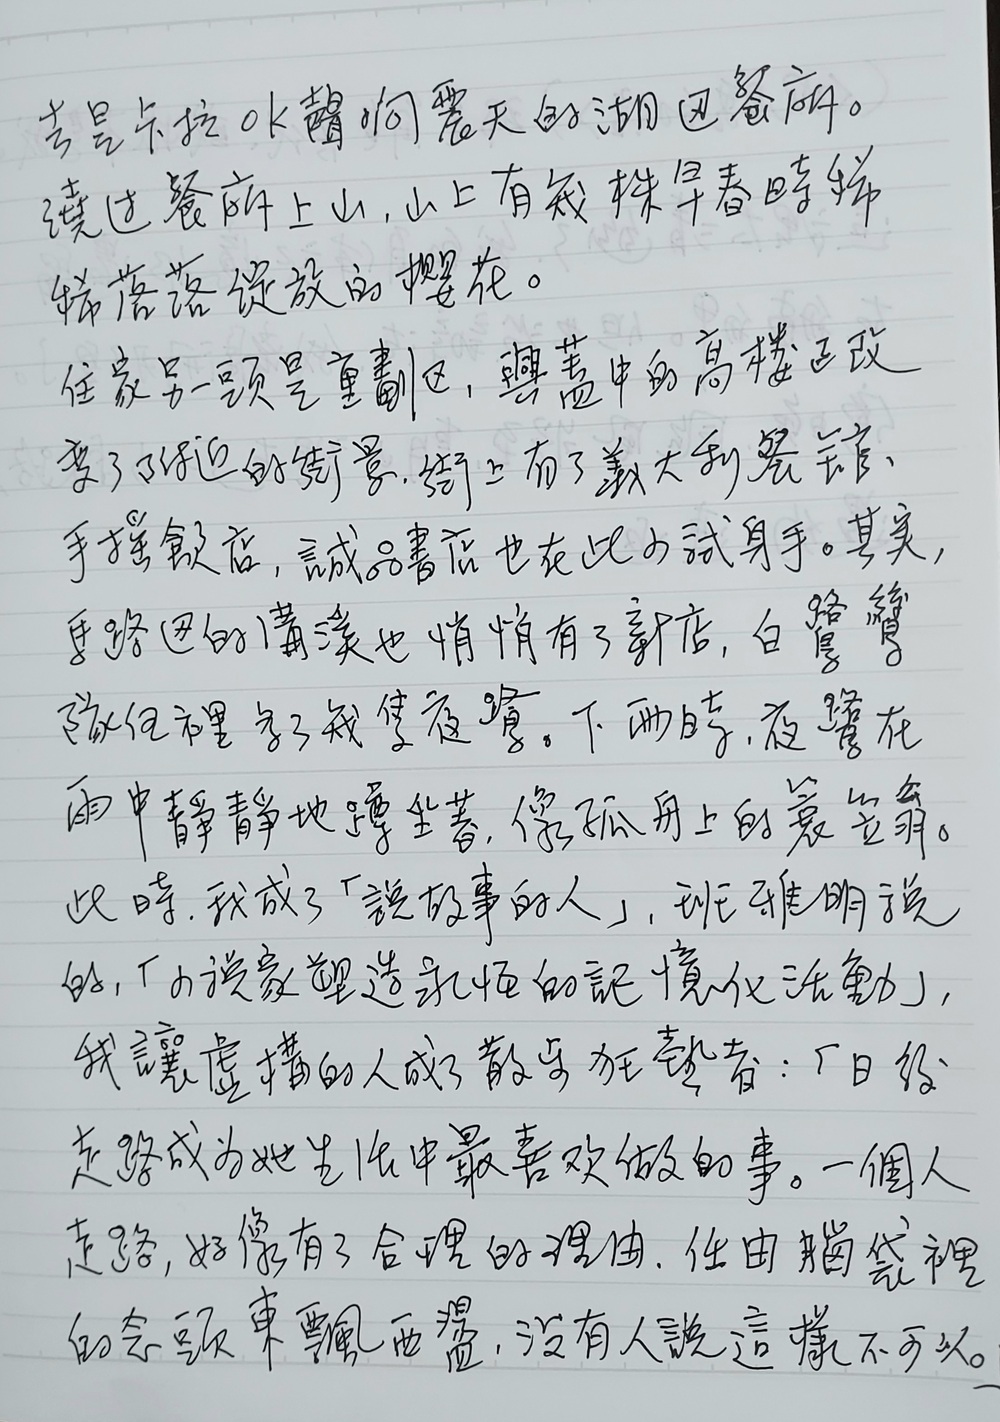 去是卡拉OK聲响震天的湖边餐廳。
繞过餐廳上山，山上有幾株早春時稀
稀落落綻放的櫻花。
住家另一頭是重劃区，興蓋中的高樓正改
变了附近的街景，街上有了義大利餐館、
手搖飲店，誠品書店也在此小試身手。其实，
馬路边的溝溪也悄悄有了新店，白鷺鷥
隊伍裡多了幾隻夜鷺。下雨時，夜鷺在
雨中靜靜地蹲坐著，像孤舟上的簑笠翁。
此時，我成了「說故事的人」，班雅明說
的，「小說家塑造永恆的記憶化活動」，
我讓虛構的人成了散步狂熱者：「日後
走路成为她生活中最喜欢做的事。一個人
走路，好像有了合理的理由，任由腦袋裡
的念頭東飄西盪，沒有人說這樣不可以。